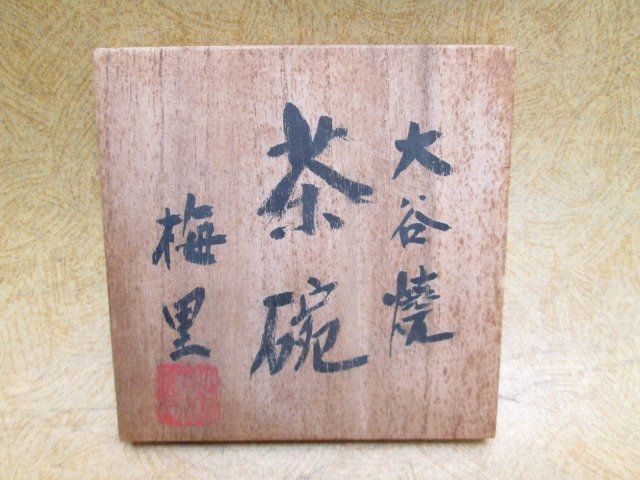 大谷燒
茶碗
梅里